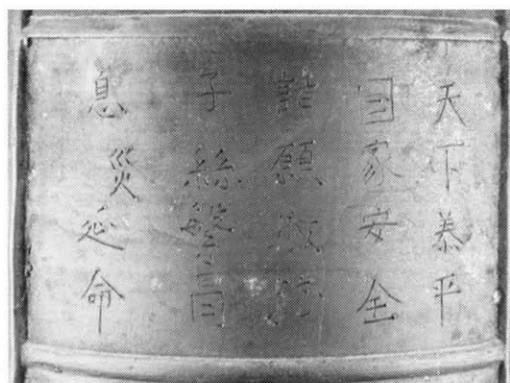 天下泰平
国家安全
諸願成就
子孫繁昌
息災延命